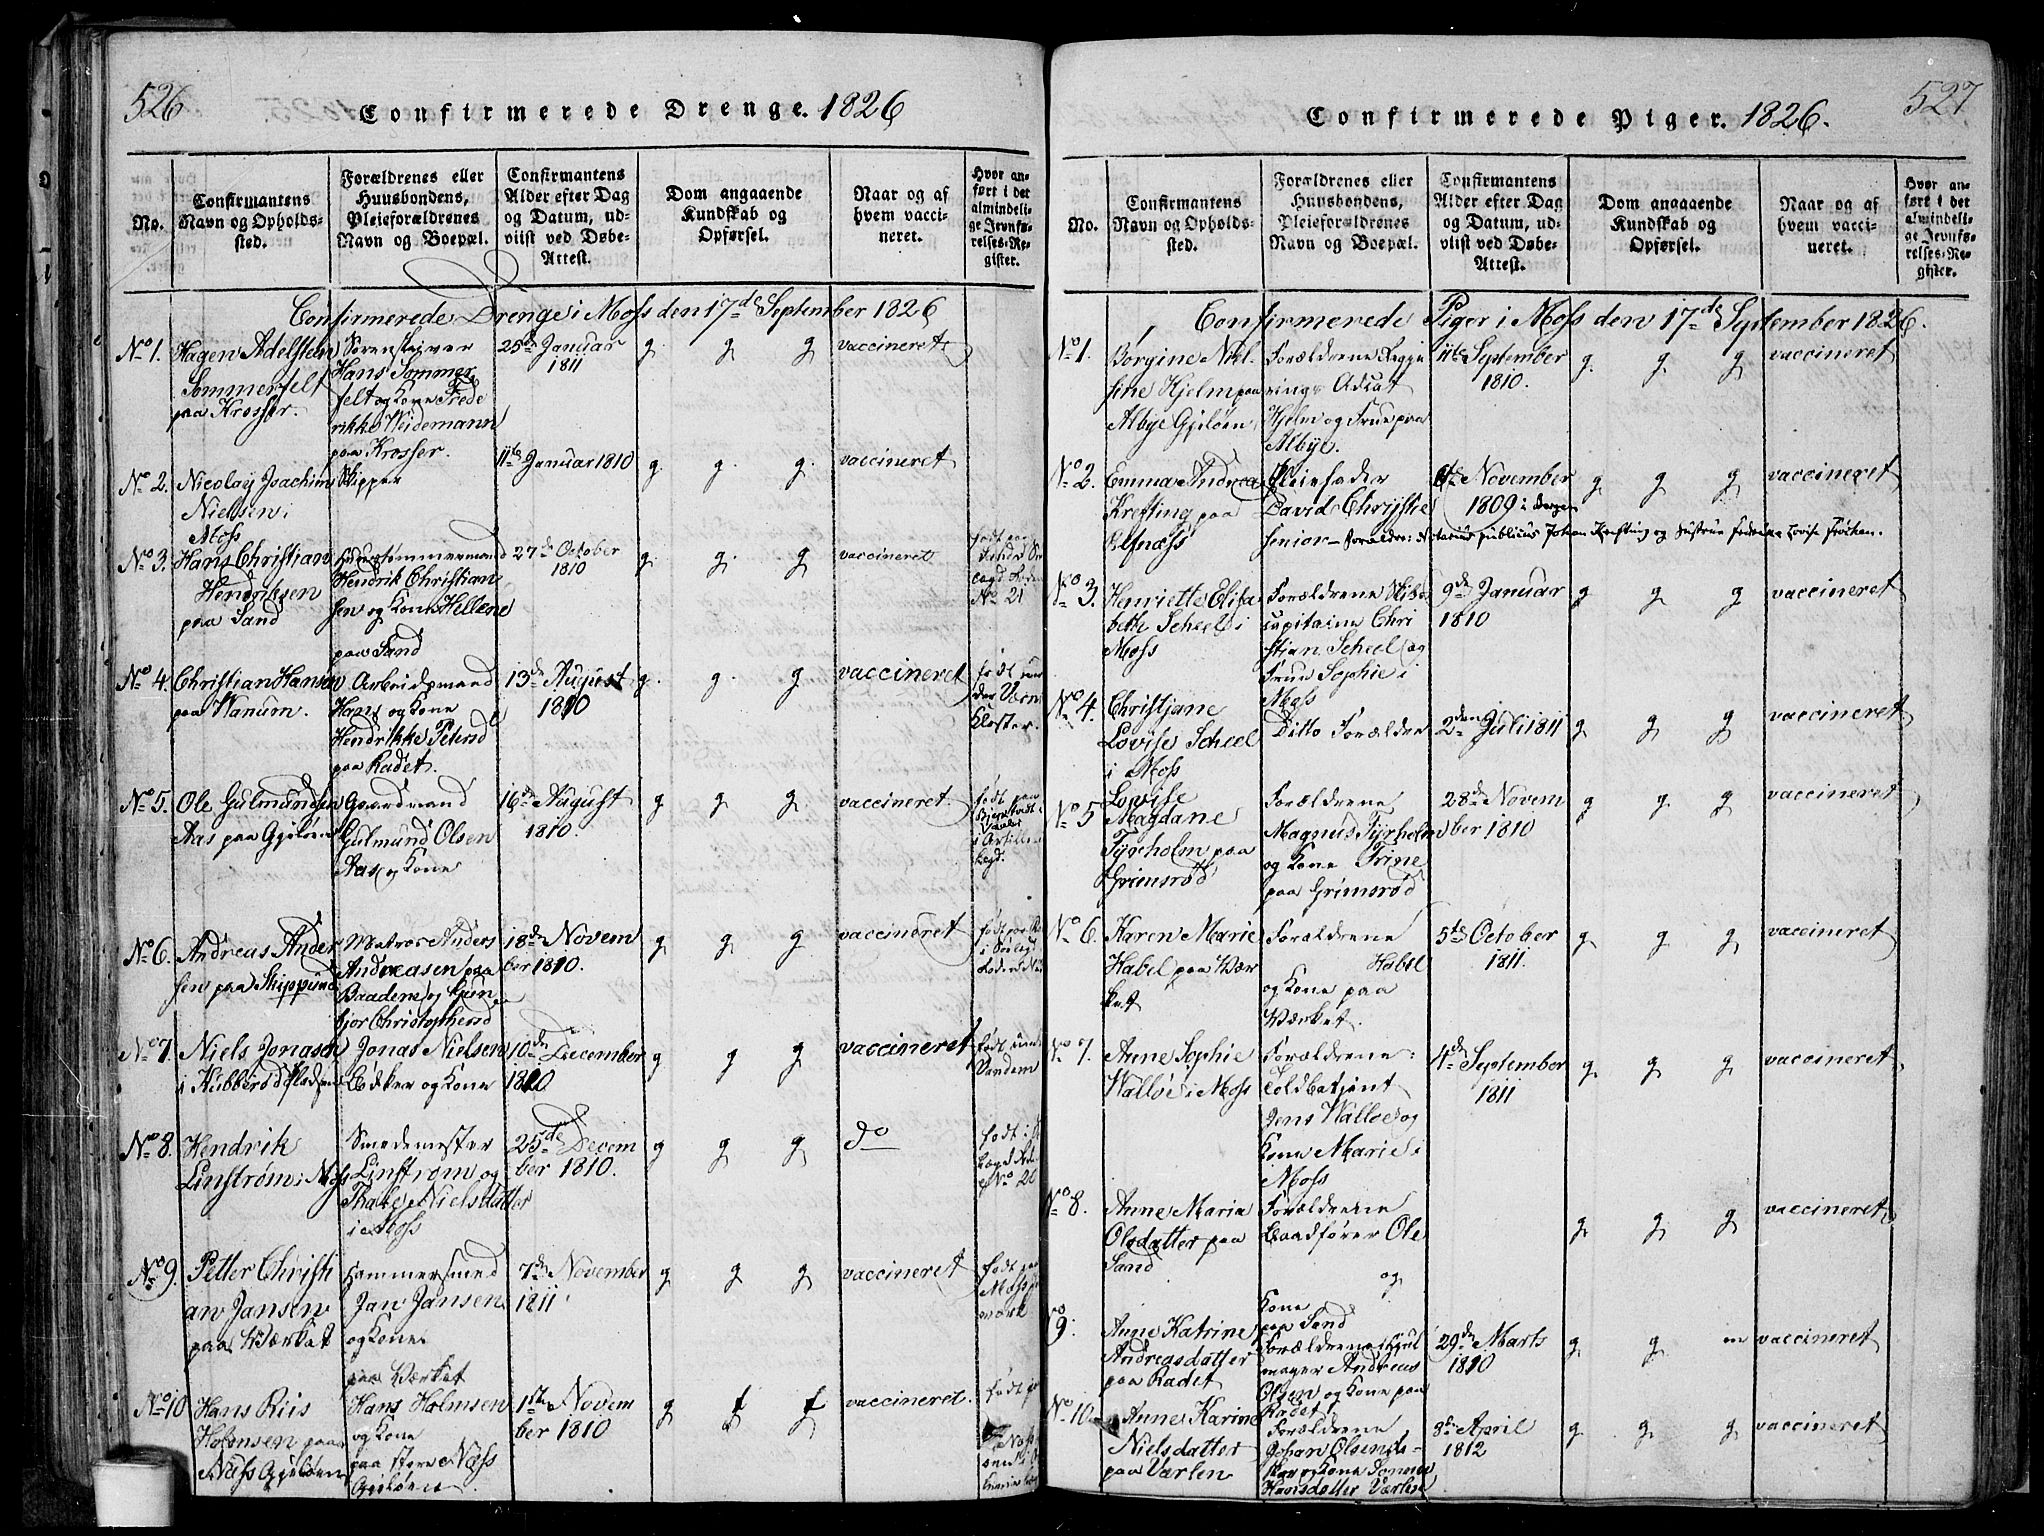 526
Confirmerede Drenge. 1826
No.
Confirmantens
Navn og Opholds-
sted.
Forældrenes eller
Huusbondens,
Pleieforældrenes
Navn og Boepæl.
Confirmantens
Alder efter Dag
og Datum, ud-
viist ved Døbe-
Attest.
Dom angaaende
Kundskab og
Opførsel.
Naar og af
hvem vacci-
neret.
Hvor an-
ført i det
almindeli-
ge Jevnfø-
relses-Re-
gister.
Confirmerede Drenge i Moss den 17de September 1826
No 1.
Hagen Adelsten
Sommerfelt
paa Krosser.
Sorenskriver
Hans Sommer
felt og Kone Frede
rikke Weidemann
paa Krosser.
25de Januar
1811
g. g g
vaccineret
No 2.
Nicolay Joachim
Nielsen i
Moss
Skipper
11te Januar 1810
g. g. g.
vaccineret
No 3.
Hans Christian
Hendriksen
paa Sand
Huustømmermand
Hendrik Christian
sen og Kone Hellene
paa Sand
27de October
1810
g. g. g
vaccineret
født
No 21
No 4.
Christian Hansen
paa Wanum.
Arbeidsmand
Hans og Kone
Hendrikke Petersd
paa Radet.
13de August
1810
g. g. g
vaccineret
født un
der Værn
Kloster.
No 5.
Ole Gulmundsen
Aas paa Gjeløen
Gaardmand
Gulmund Olsen
Aas og Kone
16de August
1810.
g g g
vaccineret.
født paa
i Artille
Legd.
No 6.
Andreas Ander
sen paa Skippund
Matros Anders
Andreasen paa
Baaden og Gun
bjor Christophersd
18de Novem
ber 1810.
g g g
vaccineret
født
No 7.
Niels Jonasen
i Kubberød Pladsen
Jonas Nielsen
Bødker og Kone
10de December
1810
g g g
vaccineret
født
No 8.
Hendrik
Linstrøm i Moss
Smedemester
Linstrøm og
Thale Nielsdatter
i Moss
25de Decem
ber 1810.
g g g
do
født i
No 20
No 9.
Petter Christi
an Jansen
paa Værket
Hammersmed
Jan Jansen
og Kone
paa Værket
7de November
1811
g g g
vaccineret
født paa
Moss
værk
No 10
Hans Riis
Holmsen paa
Næss Gjeløen
Hans Holmsen
og Kone
paa store Næss
Gjeløen
1ste Novem
ber 1810
g f f
vaccineret.
født
527
Confirmerede Piger. 1826.
No.
Confirmantens
Navn og Opholds-
sted.
Forældrenes eller
Huusbondens,
Pleieforældrenes
Navn og Boepæl.
Confirmantens
Alder efter Dag
og Datum, ud-
viist ved Døbe-
Attest.
Dom angaaende
Kundskab og
Opførsel.
Naar og af
hvem vacci-
neret.
Hvor an-
ført i det
almindeli-
ge Jevnfø-
relses-Re-
gister.
Confirmerede Piger i Moss den 17de September 1826.
No 1.
Børgine Niel
sine Hjelm paa
Albye Gjeløen
Forældrene Regje
rings Advcat
Hjelm og Frue paa
Albye.
11te September
1810.
g. g. g
vaccineret
No 2.
Emma Andrea
Krefting paa
Refnæss
Pleiefader
David Chrystie
senior – Forældre: Notarius publicus Johan Krefting og Hustrue Frederikke Lovise Frøchen.
6te November
1809 i Bergen
g g g
vaccineret
No 3.
Henriette Elisa
beth Scheel i
Moss
Forældrene Skibs
capitaine Chri
stian Scheel og
Frue Sophie i
Moss
9de Januar
1810
g g g
vaccineret
No 4.
Christjane
Lovise Scheel
i Moss
Ditto Forældre
2den Juli 1811
g g g
vaccineret
No 5
Lovise
Magdane
Tyrholm paa
Grimsrød
Forældrene
Magnus Tyrholm
og Kone Trine
paa Grimsrød
28de Novem
ber 1810
g g. g
vaccineret
No 6.
Karen Marie
Habel paa Vær
ket
Forældrene
Habel
og Kone paa
Værket.
5te October
1811.
g g g
vaccineret
No 7.
Anne Sophie
Walløe i Moss
Forældrene:
Toldbetjent
Jens Walløe og
Kone Marie i
Moss
4de September
1811
g g g
vaccineret
No 8.
Anne Maria
Olsdatter paa
Sand
Forældrene
Baadfører Ole
og
Kone
paa Sand
g g g
vaccineret
9.
Anne Katrine
Andreasdatter
paa Radet
Forældrene Hjul
mager Andreas
Olsen og Kone paa
Radet
29de Marts
1810
g g m
vaccineret
No 10.
Anne Karine
Nielsdatter
paa Varlen
Forældrene
Johan Olsen
og Kone
Hansdatter Varlen
8de April
1812
g g g
vaccineret